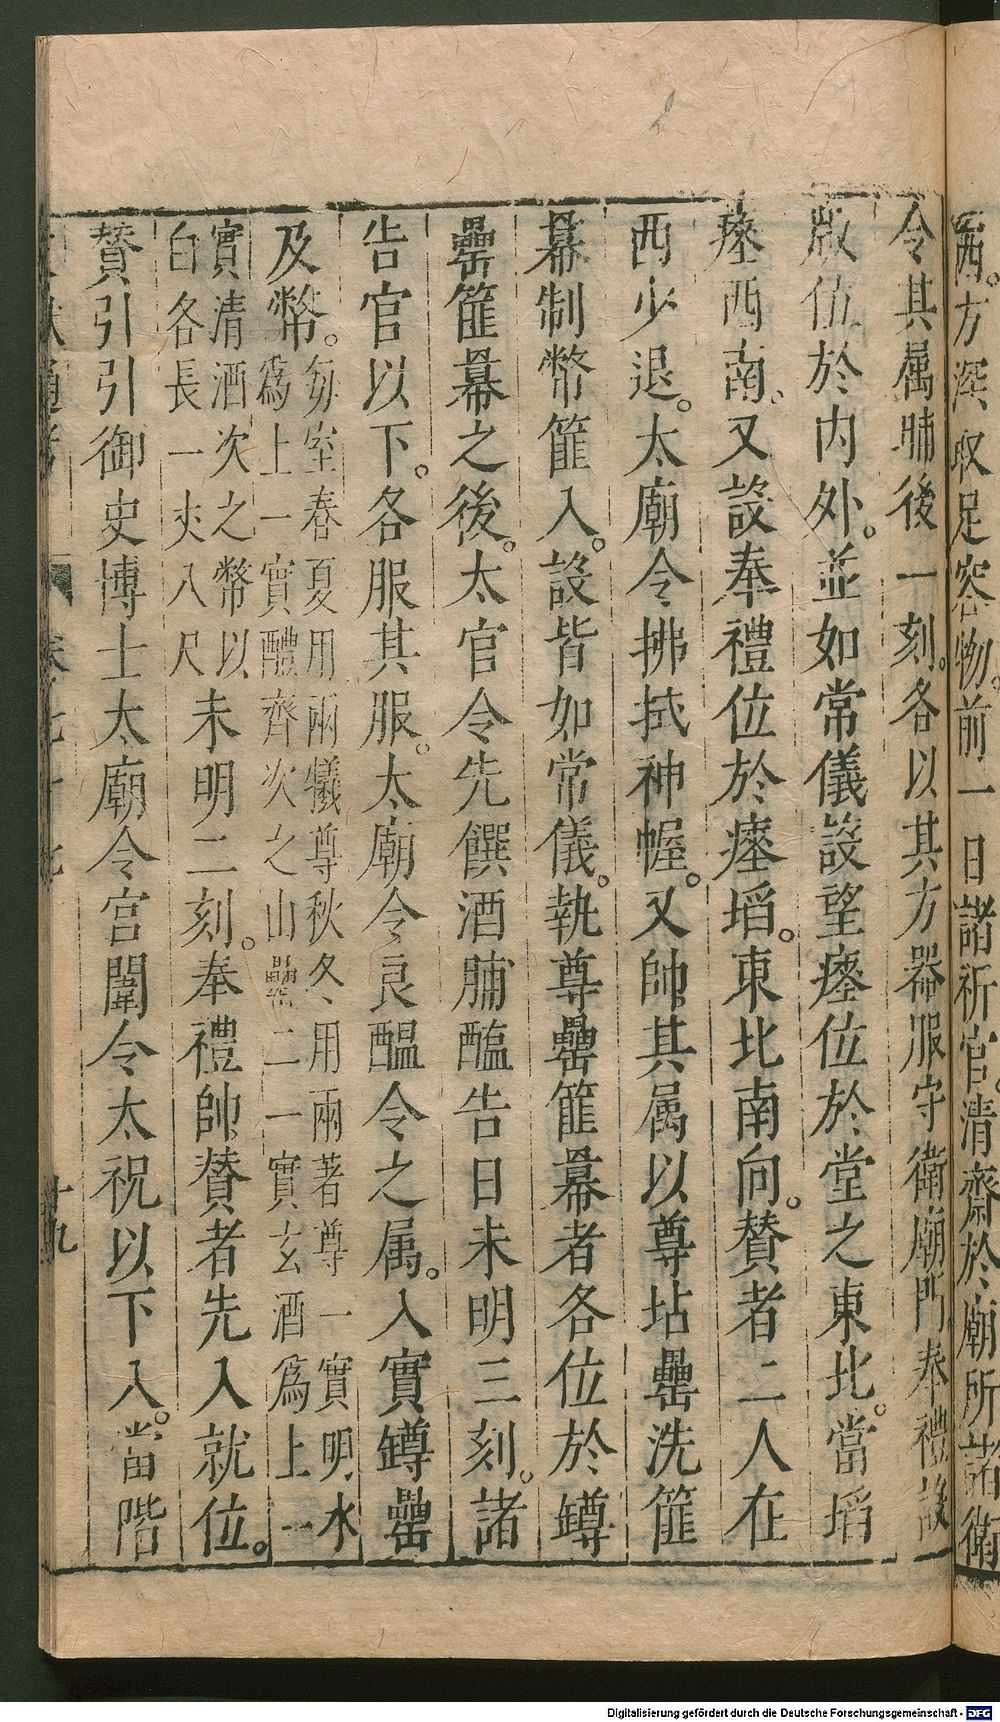 西。方深取足容物。前一日諸祈官。清齋於廟所諸衛
令其属晡後一刻。各以其方器服守衛廟門奉禮設
版位於内外。並如常儀設望瘞位於堂之東北。當埳
瘞西南。又設奉禮位於瘞埳。東北南向。贊者二人在
西少退。太廟令拂拭神幄。又帥其属以尊坫罍洗篚
冪制幣篚入。設皆如常儀。執尊罍篚冪者各位於罇
罍篚冪之後。太官令先饌酒脯醢告日未明三刻。諸
告官以下。各服其服。太廟令良醖令之属。入實罇罍
及幣。每室春夏用兩犧尊秋冬用兩著尊一實明水
爲上一實醴齊次之山罍二一實玄酒爲上一
實清酒次之幣以
白各長一丈八尺未明二刻。奉禮帥贊者先入就位。
贊引引御史博士太廟令宫闈令太祝以下入。當階
通考
卷
七十七
十九
Digitalisierung gefördert durch die Deutsche Forschungsgemeinschaft - DFG